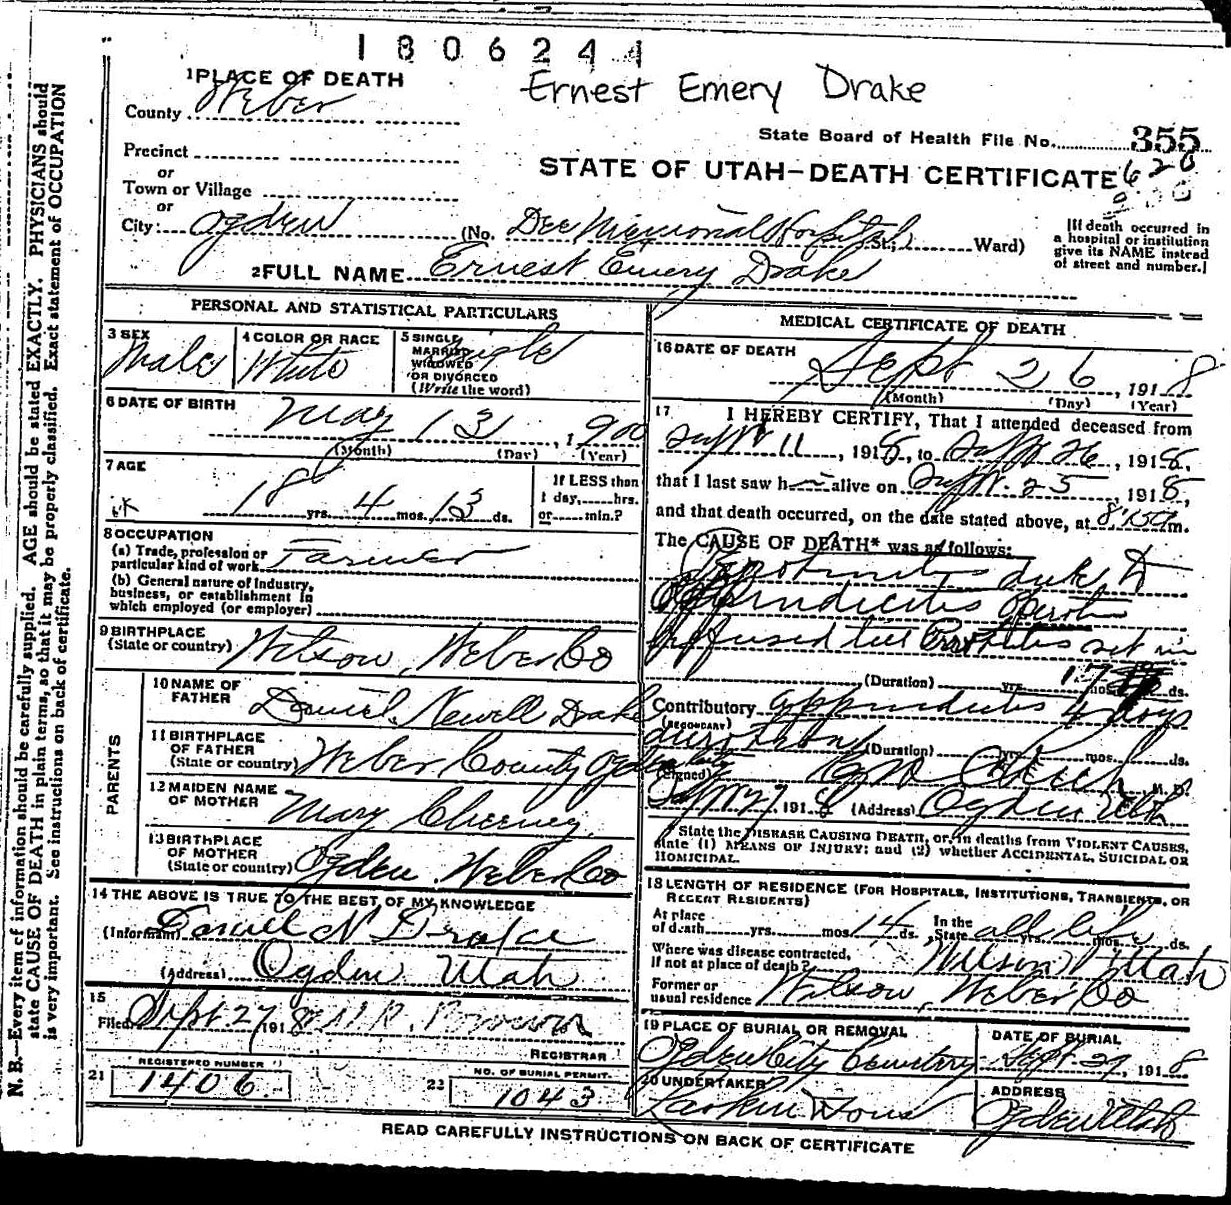 1806244
Ernest Emery Drake
1 PLACE OF DEATH
County Weber
State Board of Health File No. 355
Precinct
or
STATE OF UTAH—DEATH CERTIFICATE 620
Town or Village
or
City: Ogden (No. Dee Memorial Hospital St.; Ward)
[If death occurred in
a hospital or institution
give its NAME instead
of street and number.]
2 FULL NAME Ernest Emery Drake
PERSONAL AND STATISTICAL PARTICULARS
3 SEX
Male
4 COLOR OR RACE
White
5 SINGLE,
MARRIED
WIDOWED
OR DIVORCED
(Write the word)
Single
6 DATE OF BIRTH
May 13, 1900
(Month) (Day) (Year)
7 AGE
18 yrs. 4 mos. 13 ds.
If LESS than
1 day,......hrs.
or......min.?
8 OCCUPATION
(a) Trade, profession or
particular kind of work Farmer
(b) General nature of Industry,
business, or establishment in
which employed (or employer)
9 BIRTHPLACE
(State or country) Wilson, Weber Co
PARENTS
10 NAME OF
FATHER Daniel Newell Drake
11 BIRTHPLACE
OF FATHER
(State or country) Weber County Ogden City
12 MAIDEN NAME
OF MOTHER Mary Cheeney
13 BIRTHPLACE
OF MOTHER
(State or country) Ogden Weber Co
14 THE ABOVE IS TRUE TO THE BEST OF MY KNOWLEDGE
(Informant) Daniel N Drake
(Address) Ogden Utah
15
Filed Sept 27 1918
REGISTRAR
21 REGISTERED NUMBER
1406
22 NO. OF BURIAL PERMIT.
1043
MEDICAL CERTIFICATE OF DEATH
16 DATE OF DEATH
Sept 26, 1918
(Month) (Day) (Year)
17 I HEREBY CERTIFY, That I attended deceased from
Sept 11, 1918, to Sept 26, 1918,
that I last saw h alive on Sept. 25, 1918,
and that death occurred, on the date stated above, at m.
The CAUSE OF DEATH* was as follows:
Peritonitis due to
Appendicitis
refused till Peritonitis set in
(Duration) yrs. mos. ds.
Contributory appendicitis 4 days
(SECONDARY)
duration (Duration) yrs. mos. ds.
(Signed) M. D.
Sept 27 1918 (Address) Ogden Utah
* State the DISEASE CAUSING DEATH, or, in deaths from VIOLENT CAUSES,
state (1) MEANS OF INJURY; and (2) whether ACCIDENTAL, SUICIDAL OR
HOMICIDAL.
18 LENGTH OF RESIDENCE (FOR HOSPITALS, INSTITUTIONS, TRANSIENTS, OR
RECENT RESIDENTS)
At place
of death yrs. mos. 14 ds. In the
State all life yrs. mos. ds.
Where was disease contracted,
If not at place of death? Wilson Utah
Former or
usual residence Wilson, Weber Co
19 PLACE OF BURIAL OR REMOVAL
Ogden City Cemetery
DATE OF BURIAL
Sept 29, 1918
20 UNDERTAKER
Larkin Sons
ADDRESS
Ogden Utah
READ CAREFULLY INSTRUCTIONS ON BACK OF CERTIFICATE
N. B.—Every item of information should be carefully supplied. AGE should be stated EXACTLY. PHYSICIANS should
state CAUSE OF DEATH in plain terms, so that it may be properly classified. Exact statement of OCCUPATION
is very important. See instructions on back of certificate.